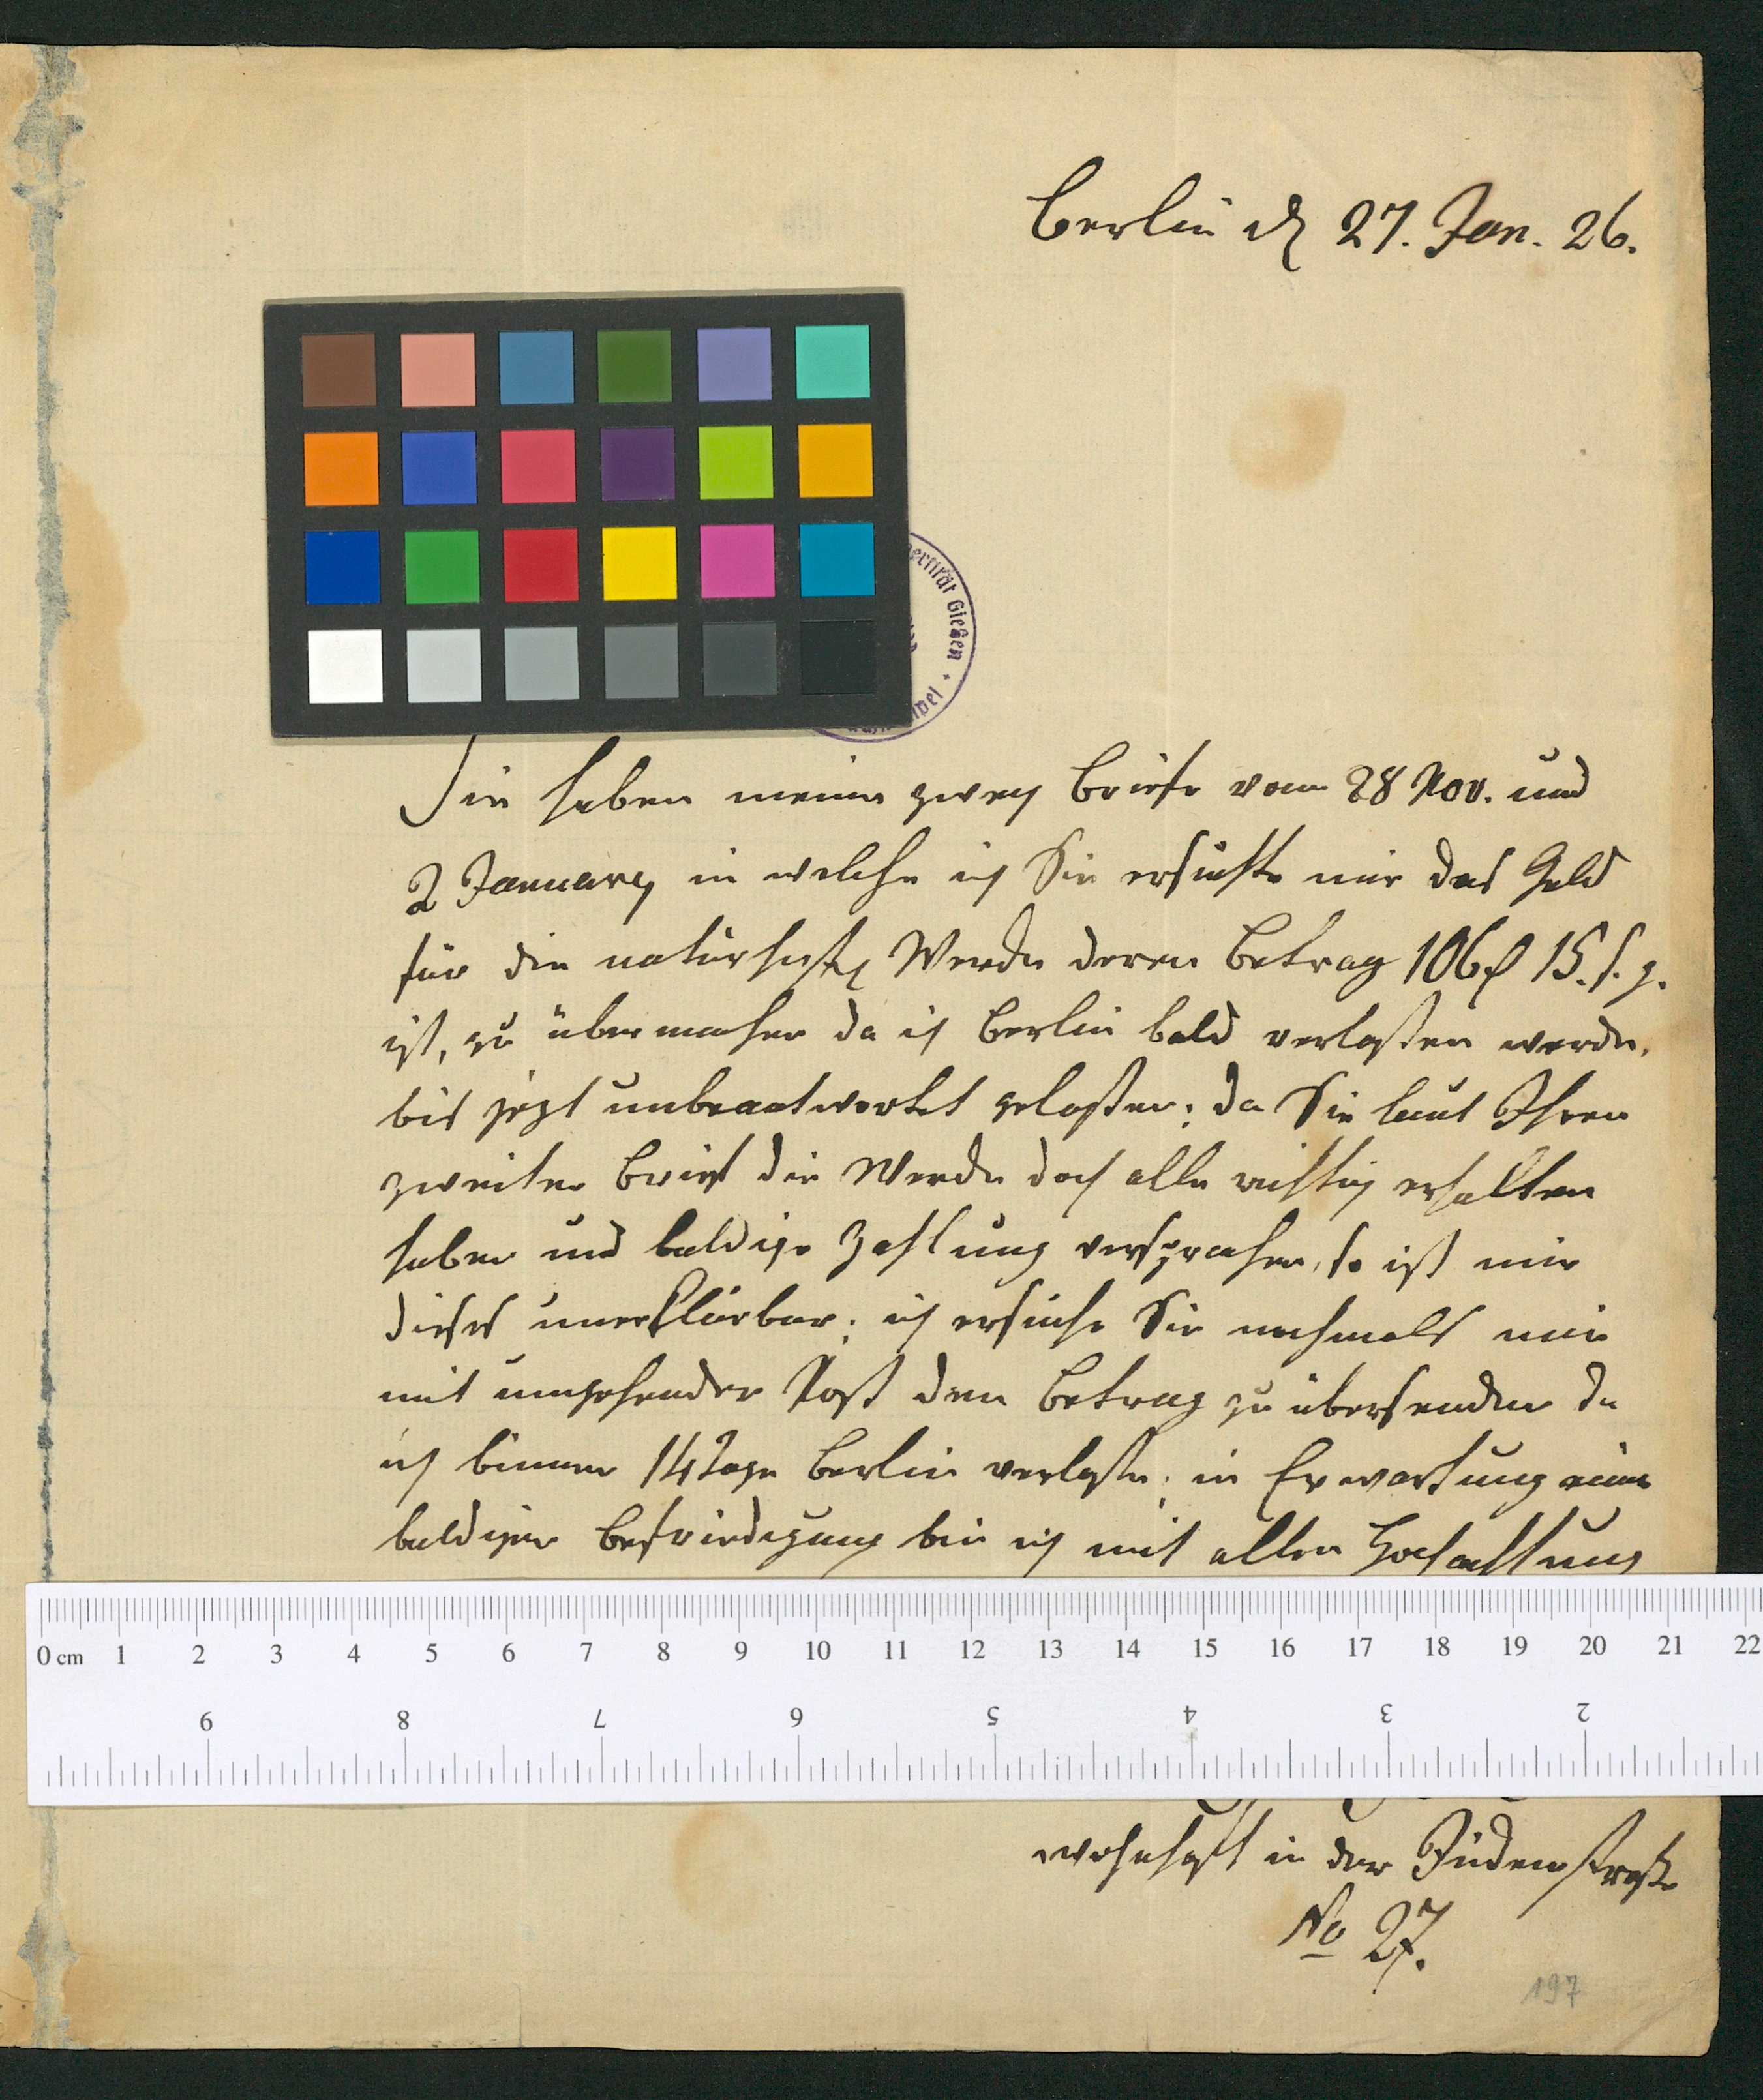 Berlin d 27. Jan. 26.
ersität Gießen
Sie haben meine zwey Briefe vom 28 Nov. und
2 January in welche ich Sie ersuchte mir das Geld
für die naturhist. Werke deren Betrag 106 15. s. g.
ist, zu übermachen da ich Berlin bald verlaßen werde,
bis jezt unbeantwortet gelaßen; da Sie laut Ihren
zweiten Brief die Werke doch alle richtig erhalten
haben und baldige Zahlung versprachen, so ist mir
dieses unerklärbar; ich ersuche Sie nochmals mir
mit umgehender Post den Betrag zu übersenden da
ich binnen 14 Tage Berlin verlaße; in Erwartung einer
baldigen Befriedigung bin ich mit allen Hochachtung
0 cm 1 2 3 4 5 6 7 8 9 10 11 12 13 14 15 16 17 18 19 20 21 22
9 8 7 6 5 4 3 2
wohnhaft in der Jüdenstraße
No 27.
197